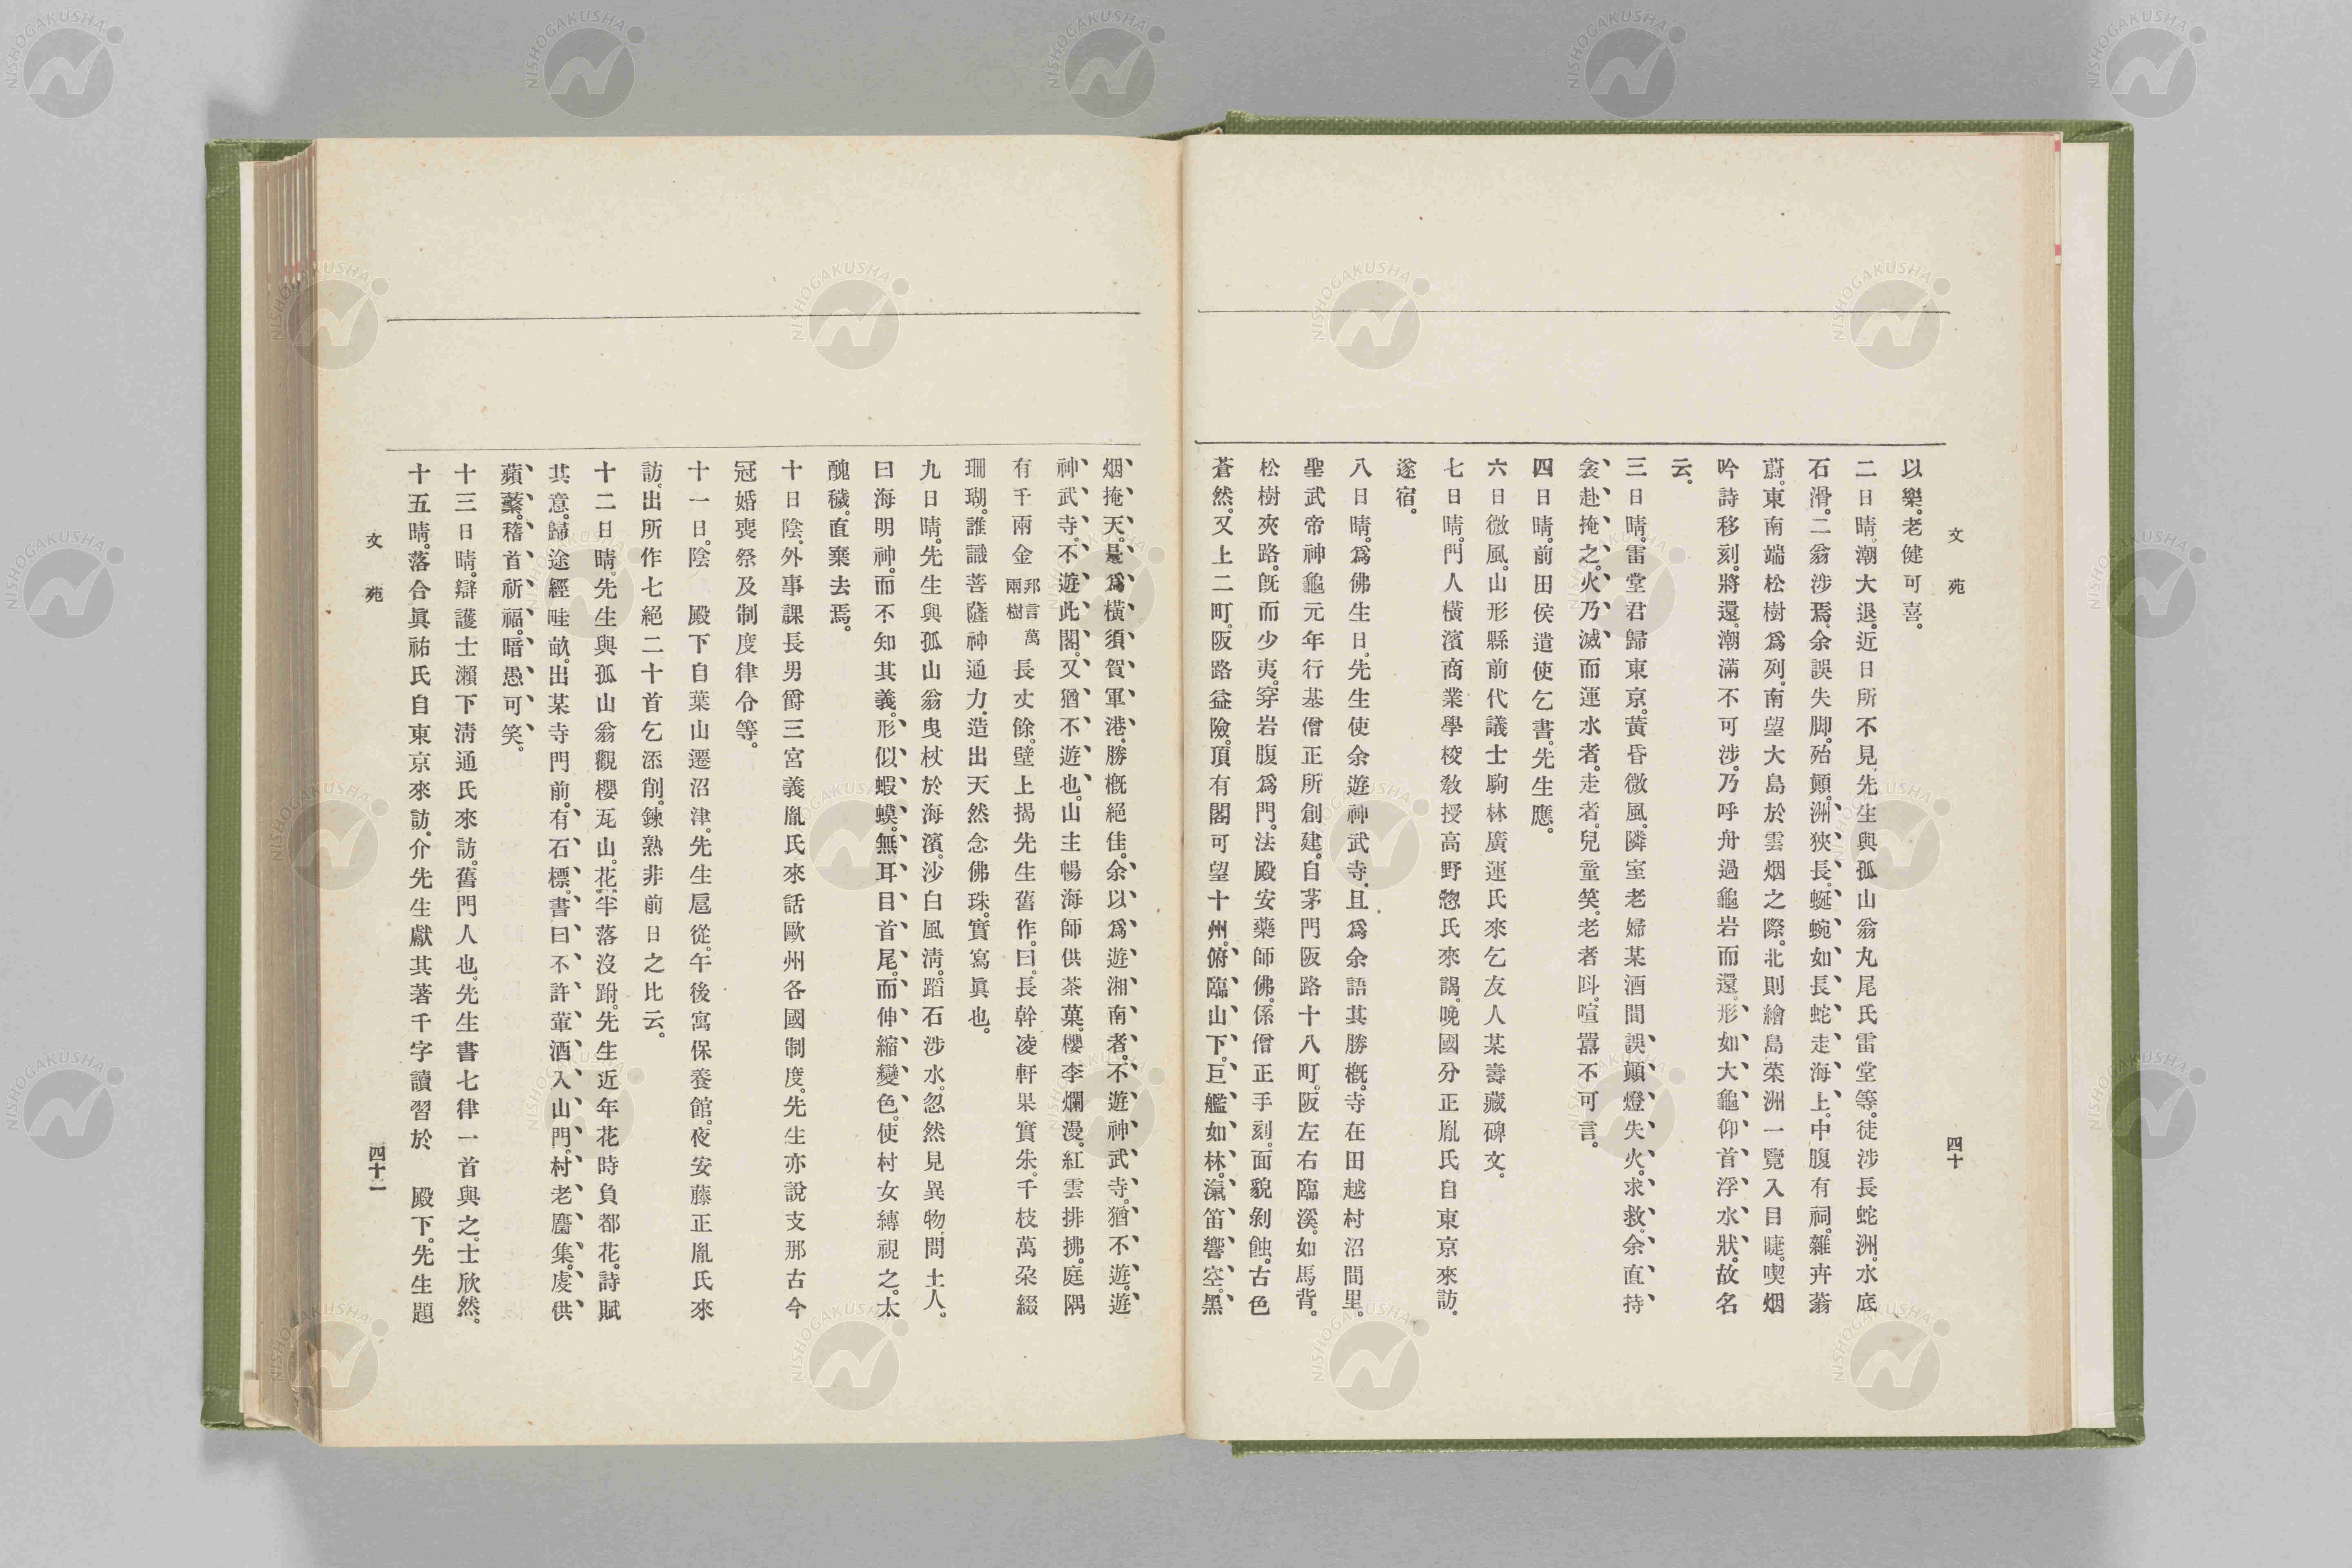 文苑
四十
以樂。老健可喜。
二日晴。潮大退。近日所不見。先生與孤山翁丸尾氏雷堂等。徒涉長蛇洲。水底
石滑。二翁涉焉。余誤失脚。殆顚。洲狹長。蜒蜿如長蛇走海上。中腹有祠。雜卉蓊
蔚。東南端松樹爲列。南望大島於雲烟之際。北則繪島菜洲一覽入目睫。喫烟
吟詩移刻。將還。潮滿不可涉。乃呼舟過龜岩而還。形如大龜仰首浮水狀。故名
云。
三日晴。雷堂君歸東京。黃昏微風。隣室老婦某酒間誤顚燈失火。求救。余直持
衾赴掩之。火乃滅。而運水者。走者。兒童笑。老者呌。喧囂不可言。
四日晴。前田侯遣使乞書。先生應。
六日微風。山形縣前代議士駒林廣運氏來乞友人某壽藏碑文。
七日晴。門人橫濱商業學校敎授高野惣氏來謁。晚國分正胤氏自東京來訪。
遂宿。
八日晴。爲佛生日。先生使余遊神武寺。且爲余語其勝槪。寺在田越村沼間里。
聖武帝神龜元年行基僧正所創建。自茅門阪路十八町。阪左右臨溪。如馬背。
松樹夾路。旣而少夷。穿岩腹爲門。法殿安藥師佛。係僧正手刻。面貌剝蝕。古色
蒼然。又上二町。阪路益險。頂有閣可望十州。俯臨山下。巨艦如林。瀛笛響空。黑
烟掩天。是爲橫須賀軍港。勝槪絕佳。余以爲遊湘南者。不遊神武寺。猶不遊。遊
神武寺。不遊此閣。又猶不遊也。山主暢海師供茶菓。櫻李爛漫。紅雲排拂。庭隅
有千兩金邦言萬兩樹長丈餘。壁上揭先生舊作。曰。長幹凌軒果實朱。千枝萬朶綴
珊瑚。誰識菩薩神通力。造出天然念佛珠。實寫眞也。
九日晴。先生與孤山翁曳杖於海濱。沙白風淸。蹈石涉水。忽然見異物。問土人。
曰海明神。而不知其義。形似蝦蟆。無耳目首尾。而伸縮變色。使村女縛視之。太
醜穢。直棄去焉。
十日陰。外事課長男爵三宮義胤氏來話歐州各國制度。先生亦說支那古今
冠婚喪祭及制度律令等。
十一日。陰 殿下自葉山遷沼津。先生扈從。午後寓保養館。夜安藤正胤氏來
訪。出所作七絕二十首乞添削。鍊熟非前日之比云。
十二日晴。先生與孤山翁觀櫻瓦山。花半落沒跗。先生近年花時負都花。詩賦
其意。歸途經畦畝。出某寺門前。有石標。書曰不許葷酒入山門。村老麕集。虔供
蘋蘩。稽首祈福。暗愚可笑。
十三日晴。辯護士瀨下淸通氏來訪。舊門人也。先生書七律一首與之。士欣然。
十五晴。落合眞祐氏自東京來訪。介先生獻其著千字讀習於 殿下。先生題
文苑
四十一